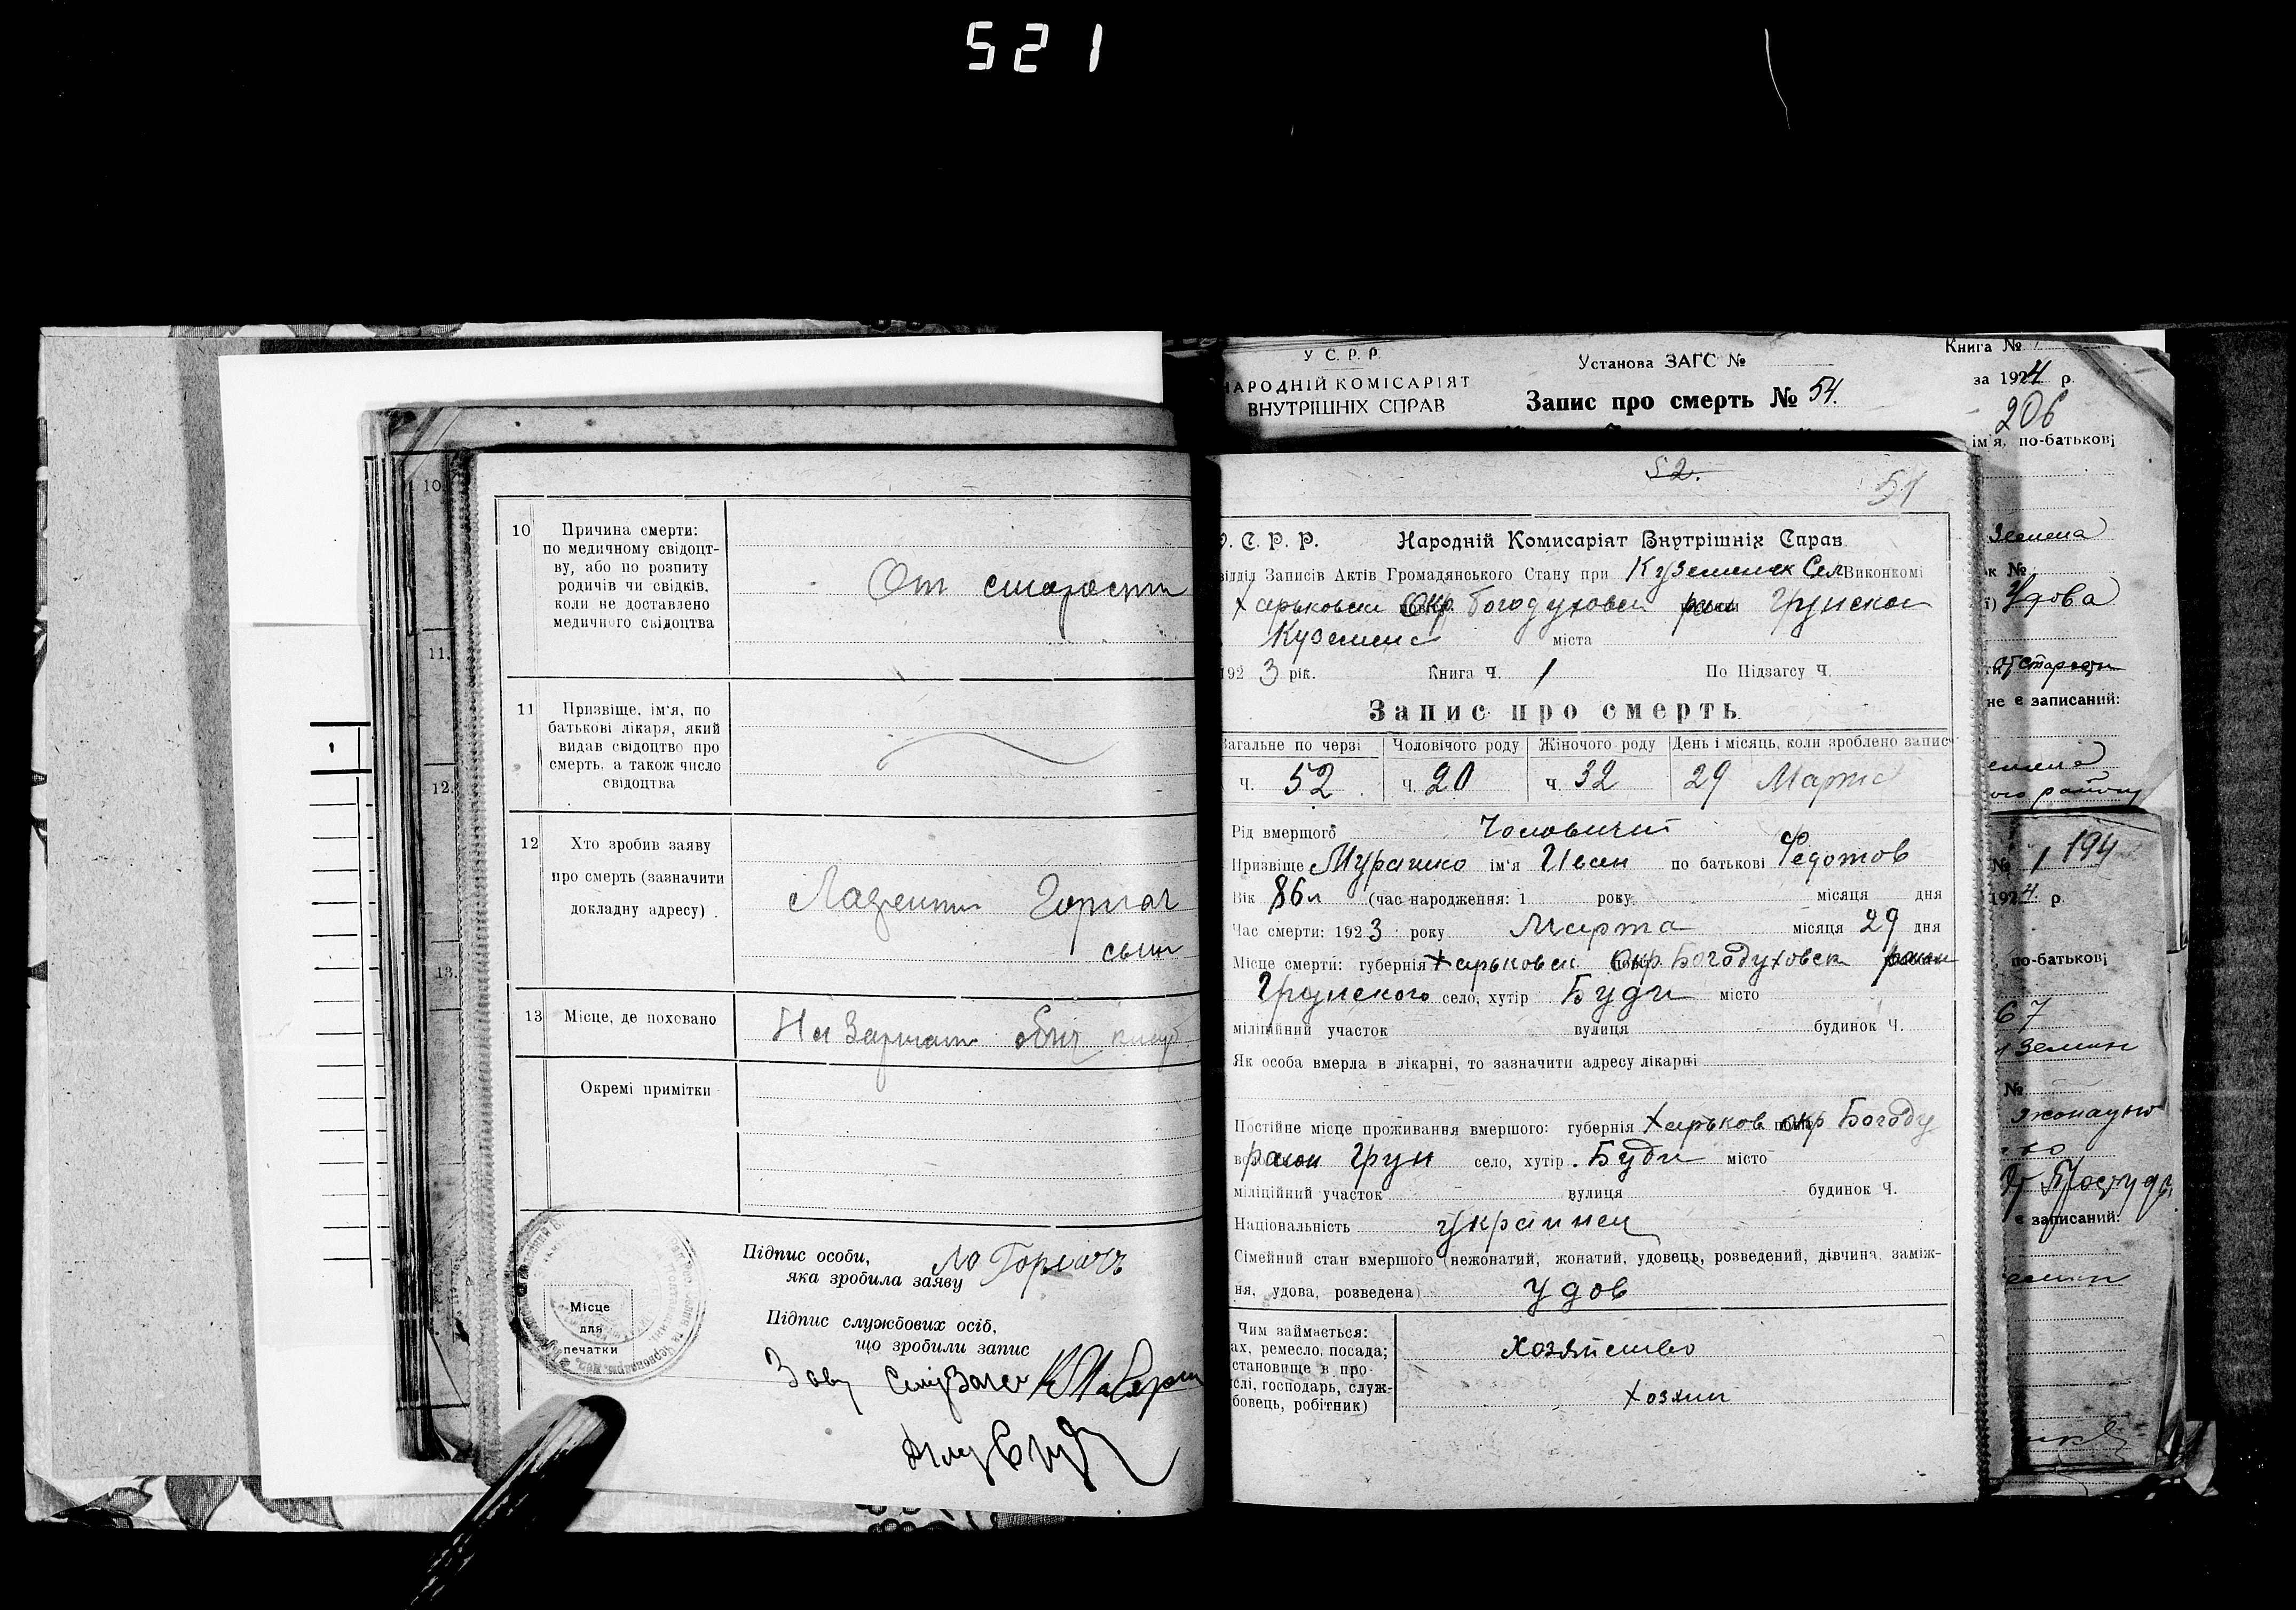 521
10
11.
12.
13.
1
10 Причина смерти:
по медичному свідоцт-
ву, або по розпиту
родичів чи свідків,
коли не доставлено
медичного свідоцтва
От старости
11 Призвіще, ім'я, по
батькові лікаря, який
видав свідоцтво про
смерть, а також число
свідоцтва
12 Хто зробив заяву
про смерть (зазначити
докладну адресу)
Горкач
сын
13 Місце, де поховано
На
Окремі примітки
Місце
для
печатки
Підпис особи,
яка зробила заяву
Підпис службових осіб,
що зробили запис
У С. Р. Р.
НАРОДНІЙ КОМІСАРІЯТ
ВНУТРІШНІХ СПРАВ
Установа ЗАГС №
Запис про смерть № 54.
Книга №
за 1924 р.
206
ім'я, по-батькові
52.
51
С. Р. Р. Народній Комисаріят Внутрішніх Справ
Записів Актів Громадянського Стану при Куземенск Сел Виконкомі
Харьковск Окр. Богодуховск Грунскои
Куземене міста
1923 рік. Книга Ч. 1 По Підзагсу Ч.
Запис про смерть
Загальне по черзі Чоловічого роду Жіночого роду День і місяць, коли зроблено запис
Ч. 52 Ч. 20 Ч. 32 29 Марта
Рід вмершого Чоловичий
Призвіще Мурашко ім'я Иван по батькові Федотов
Вік 86 л (час народження: 1 року місяця дня
Час смерти: 1923 року Марта місяця 29 дня
Місце смерти: губернія Харьковск Окр Богодуховск район
Грунского село, хутір Буди місто
міліційний участок вулиця будинок Ч.
Як особа вмерла в лікарні, то зазначити адресу лікарні
Постійне місце проживання вмершого: губернія Харьков окр Богоду
район Грун село, хутір Буди місто
міліційний участок вулиця будинок Ч.
Національність украинец
Сімейний стан вмершого (нежонатий, жонатий, удовець, розведений, дівчина, заміж-
ня, удова, розведена) удов
Чим займається:
ах, ремесло, посада;
становище в про-
слі, господарь, служ-
бовець, робітник)
Хозяйство
хозяин
№
Удова
от старости
не є записаний:
№ 1 194
1924 р.
по-батькові
67
№
є записаний: